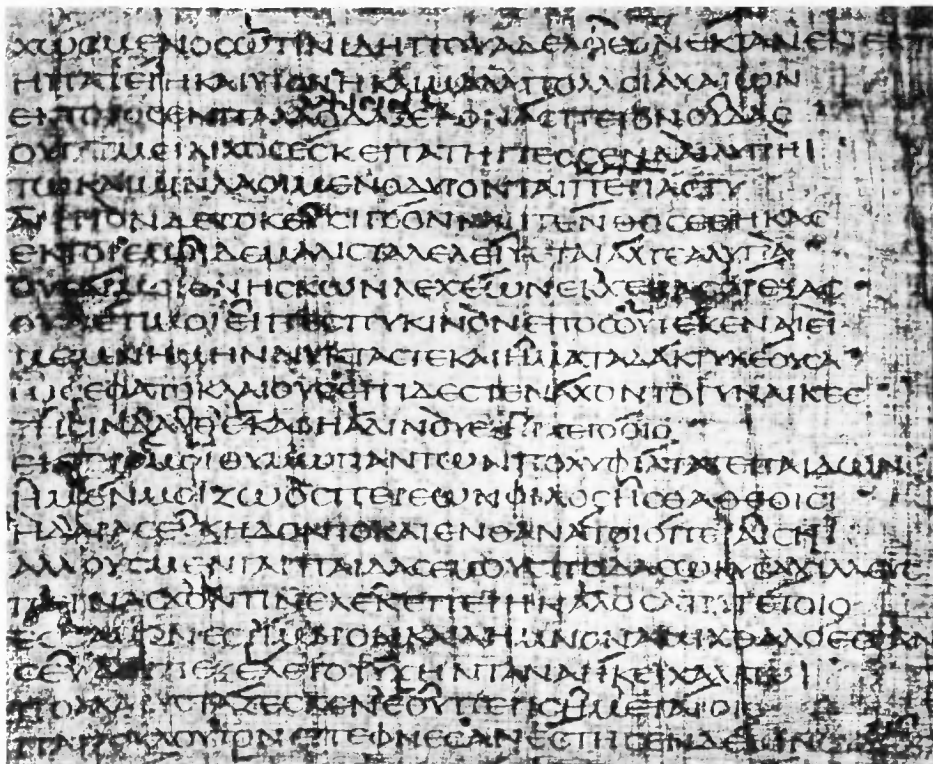 ΧΩΟΜΕΝΟCΩΤΙΝΙΔΗΠΟΥΑΔΕΛΦΕΩΝΕΚΤΑΝΕΝΕΚΤ
ΗΠΑΤΕΡΗΚΑΙΥΙΟΝΗΚΑΙΜΑΛΑΠΟΛΛΟΙΑΧΑΙΩΝ
ΕΚΤΟΡΟCΕΝΠΑΛΑΜΗCΙΝΟΔΑΞΕΛΟΝΑCΠΕΤΟΝΟΥΔΑC
ΟΥΓΑΡΜΕΙΛΙΧΟCΕCΚΕΠΑΤΗΡΤΕΟCΕΝΔΑΙΛΥΓΡΗΙ
ΤΩΚΑΙΜΙΝΛΑΟΙΜΕΝΟΔΥΡΟΝΤΑΙΠΕΡΙΑCΤΥ
ΑΡΗΤΟΝΔΕΤΟΚΕΥCΙΓΟΟΝΚΑΙΠΕΝΘΟCΕΘΗΚΑC
ΕΚΤΟΡΕΜΟΙΔΕΜΑΛΙCΤΑΛΕΛΕΙΨΕΤΑΙΑΛΓΕΑΛΥΓΡΑ
ΟΥΓΑΡΜΟΙΘΝΗCΚΩΝΛΕΧΕΩΝΕΚΧΕΙΡΑCΟΡΕΞΑC
ΟΥΔΕΤΙΜΟΙΕΙΠΕCΠΥΚΙΝΟΝΕΠΟCΟΥΤΕΚΕΝΑΙΕΙ
ΜΕΜΝΗΜΗΝΝΥΚΤΑCΤΕΚΑΙΗΜΑΤΑΔΑΚΡΥΧΕΟΥCΑ
ΩCΕΦΑΤΟΚΛΑΙΟΥCΕΠΙΔΕCΤΕΝΑΧΟΝΤΟΓΥΝΑΙΚΕC
ΤΗΙCΙΝΔΑΥΘΕΚΑΒΗΑΔΙΝΟΥΕΞΗΡΧΕΓΟΟΙΟ
ΕΚΤΟΡΕΜΩΙΘΥΜΩΠΑΝΤΩΝΠΟΛΥΦΙΛΤΑΤΕΠΑΙΔΩΝ
ΗΜΕΝΜΟΙΖΩΟCΠΕΡΕΩΝΦΙΛΟCΗCΘΑΘΕΟΙCΙ
ΗΔΑΡΑCΕΥΚΗΔΟΝΤΟΚΑΙΕΝΘΑΝΑΤΟΙΟΠΕΡΑΙCΗΙ
ΑΛΛΟΥCΜΕΝΓΑΡΠΑΙΔΑCΕΜΟΥCΠΟΔΑCΩΚΥCΑΧΙΛΛΕΥC
ΠΕΡΝΑCΧΟΝΤΙΝΕΛΕCΚΕΠΕΡΗΝΑΛΟCΑΤΡΥΓΕΤΟΙΟ
ΕCCΑΜΟΝΕCΤΙΜΒΡΟΝΚΑΙΛΗΜΝΟΝΑΜΙΧΘΑΛΟΕCCΑΝ
CΕΥΔΕΠΕΙΕΞΕΛΕΤΟΨΥΧΗΝΤΑΝΑΗΚΕΙΧΑΛΚΩΙ
ΠΟΛΛΑΡΥCΤΑΖΕCΚΕΝΕΟΥΠΕΡΙCΗΜΕΤΑΡΟΙΟ
ΠΑΤΡΟΚΛΟΥΤΟΝΕΠΕΦΝΕCΑΝΕCΤΗCΕΝΔΕΜΙΝ